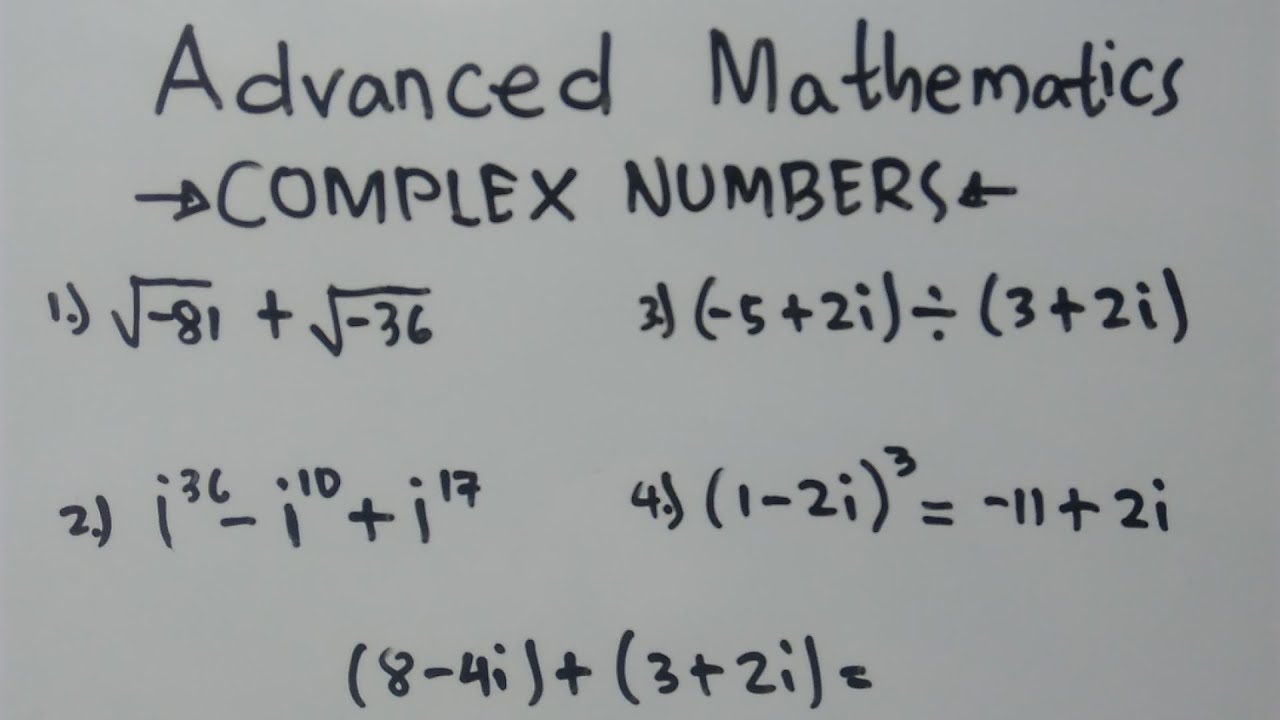 Advanced Mathematics
→COMPLEX NUMBERS←
1.) √-81 + √-36
3.) (-5+2i)÷(3+2i)
2.) i³⁶ - i¹⁰ + i¹⁷
4.) (1-2i)³ = -11+2i
(8-4i)+(3+2i)=